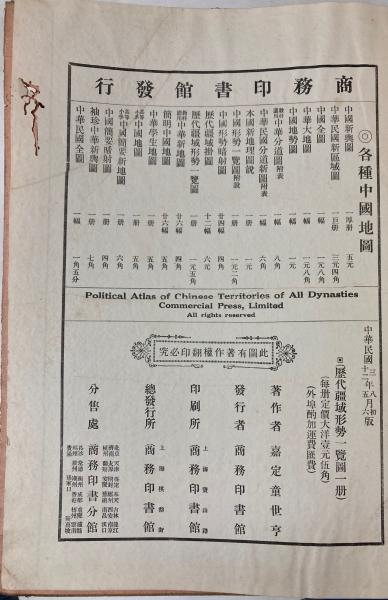 商務印書館發行
◎各種中國地圖
中國新輿圖 一厚册 五元
中華民國新區域圖 一巨册 三元四角
中國全圖 一幅 一元八角
中華大地圖 一幅 一元八角
中國地勢圖 一幅 一元
中華分道圖附表 一幅 八角
中華民國分道新圖附表 一幅 六角
本國新地理圖說 一册
中國形勢一覽圖附說 一册 一元二角
中國形勢暗射圖 廿四幅 四角
歷代疆域掛圖 十二幅
歷代疆域形勢一覽圖 一册 一元五角
中華新地圖 廿六幅 四角
簡明中國地圖 廿六幅 五角
中華學生地圖 一册 五角
中國地圖 一册 五角
中國簡要新地圖 一册 六角
中國簡要暗射圖 一册 四角
袖珍中華新輿圖 一册 七角
中華民國全圖 一幅 一角五分
Political Atlas of Chinese Territories of All Dynasties
Commercial Press, Limited
All rights reserved
此圖有著作權翻印必究
中華民國
三年八月初版
十二年五月六版
歷代疆域形勢一覽圖一册
(每册定價大洋壹元伍角)
(外埠酌加運費匯費)
著作者 嘉定童世亨
發行者 商務印書館
印刷所 商務印書館
總發行所 商務印書館
分售處 商務印書分館